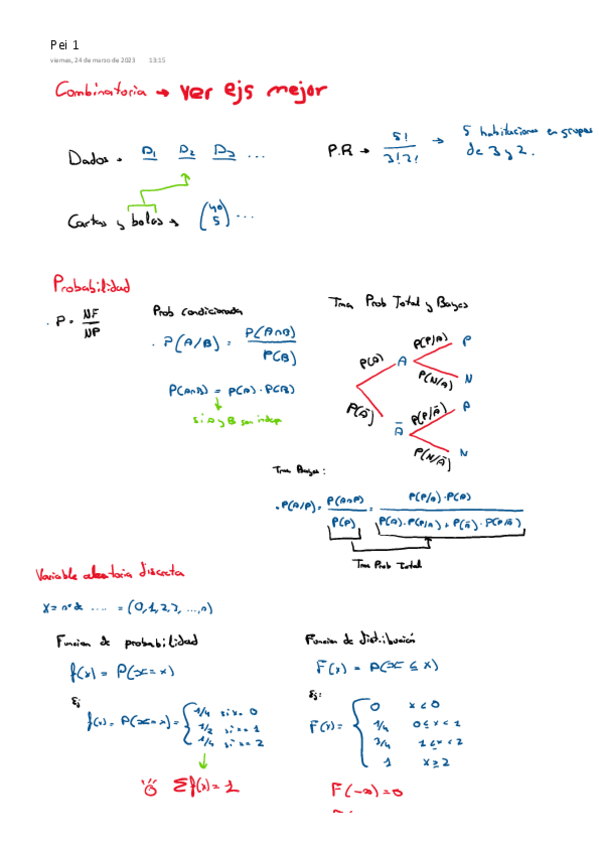 Pei 1
viernes, 24 de marzo de 2023 13:15
Combinatoria → ver ejs mejor
Dados → D1 D2 D3 ...
P.R → 5!/3!2! → 5 habitaciones en grupos de 3 y 2.
Cartas y bolas → (40 5) ...
Probabilidad
· P = NF/NP
Prob condicionada
· P(A/B) = P(A∩B)/P(B)
P(A∩B) = P(A)·P(B)
si A y B son indep
Tma Prob Total y Bayes
P(A) A P(P/A) P
P(N/A) N
P(Ā) Ā P(P/Ā) P
P(N/Ā) N
Tma Bayes:
· P(A/P) = P(A∩P)/P(P) = P(P/A)·P(A)/P(A)·P(P/A) + P(Ā)·P(P/Ā)
Tma Prob Total
Variable aleatoria discreta
X = nº de ..... = (0,1,2,3, ...,n)
Funcion de probabilidad
f(x) = P(X=x)
Ej
f(x) = P(X=x) = { 1/4 si x=0
1/2 si x=1
1/4 si x=2
Σf(x)=1
Funcion de distribución
F(x) = P(X ≤ x)
Ej:
F(x) = { 0 x<0
1/4 0≤x<1
3/4 1≤x<2
1 x≥2
F(-∞)=0